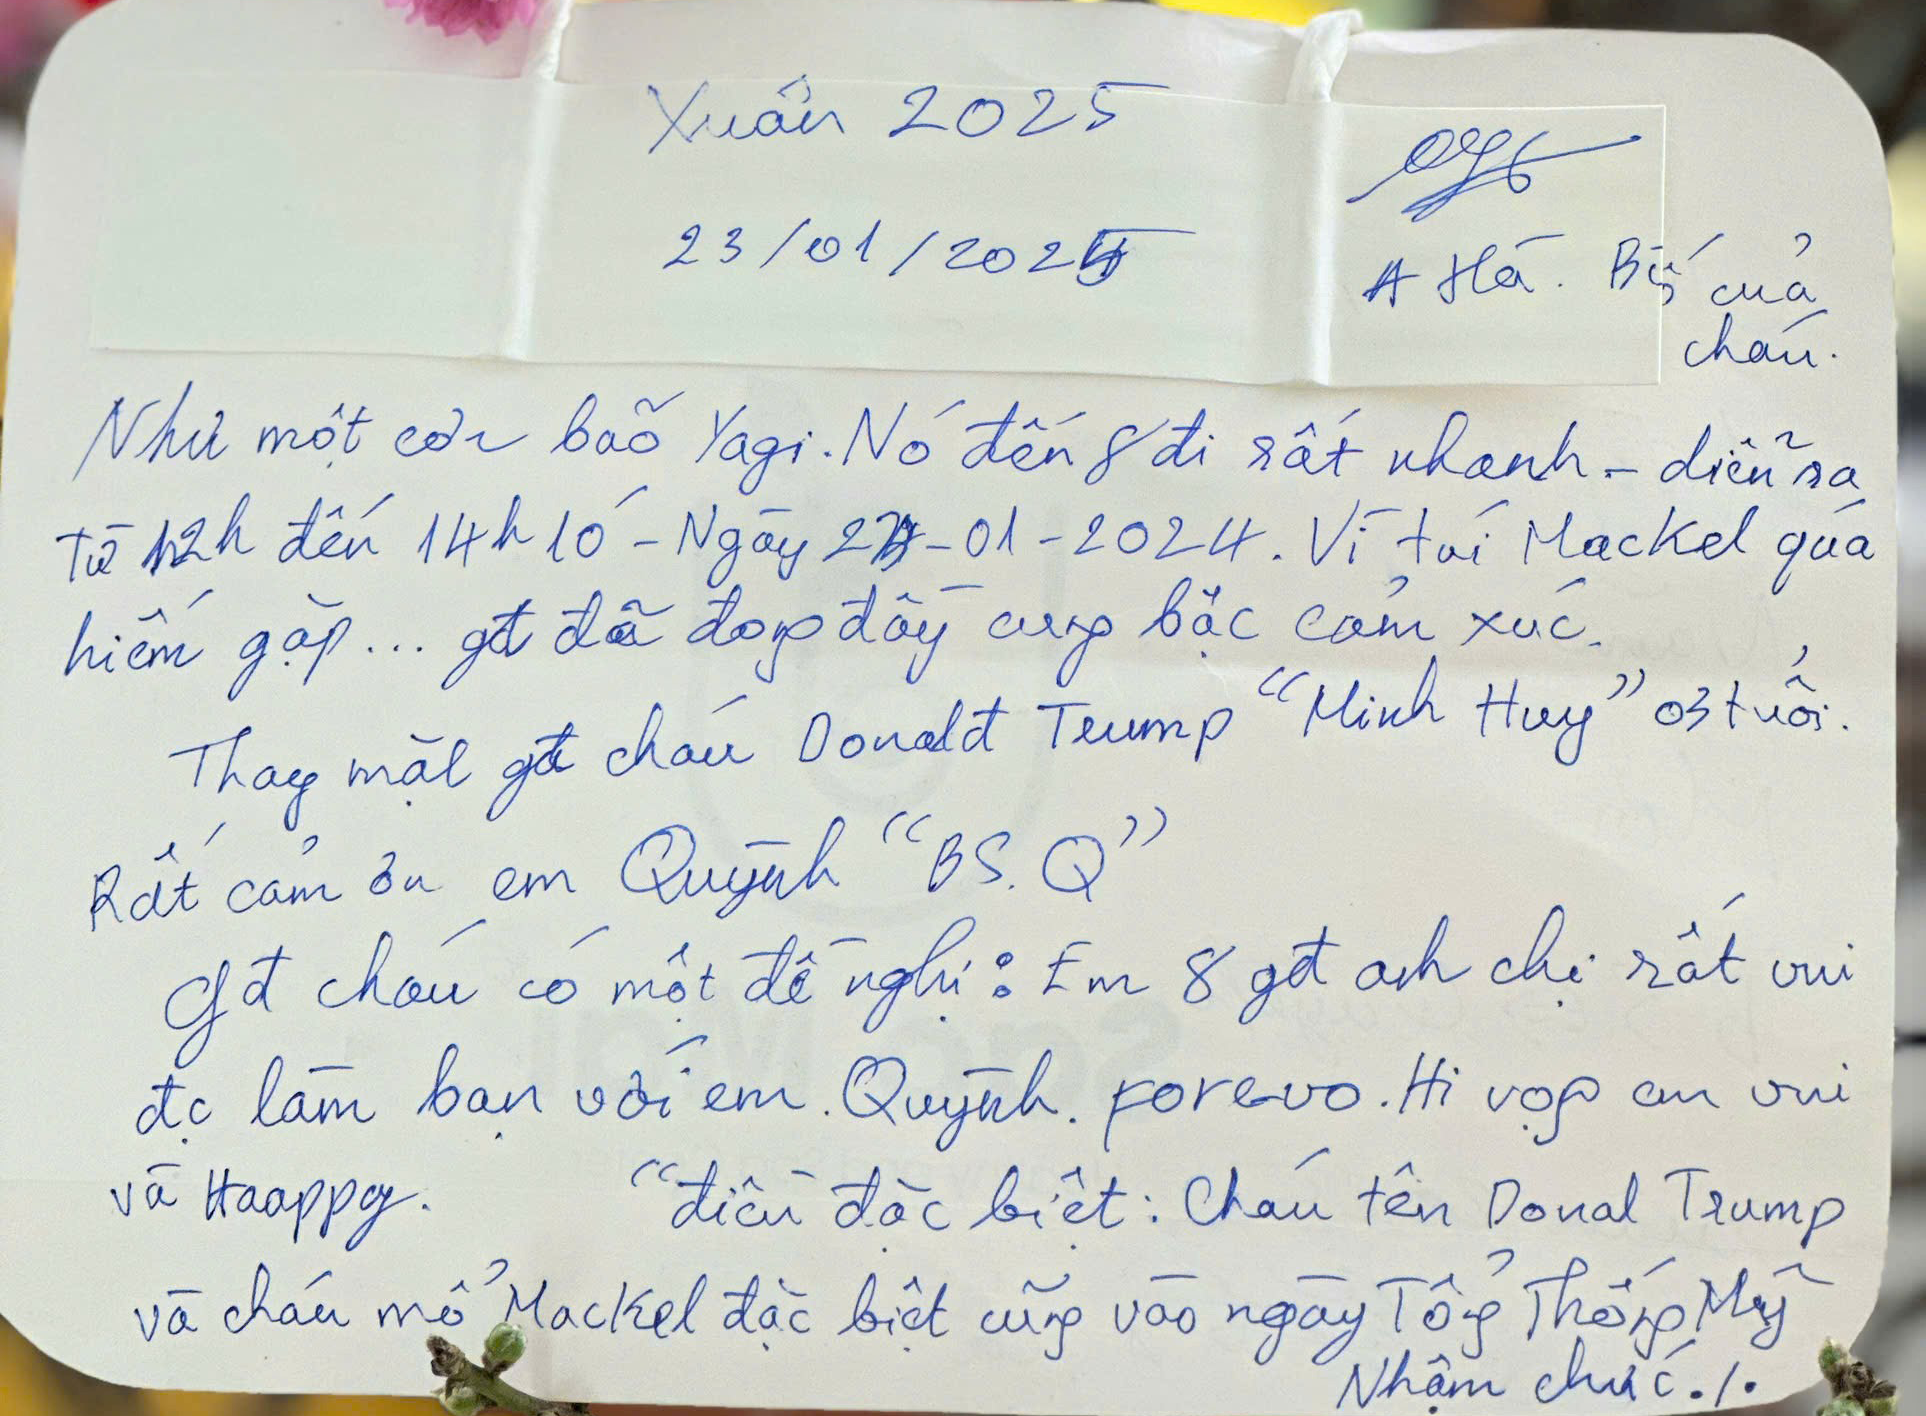 Xuân 2025
23/01/2025
A Hà. Bố của
cháu.
Như một cơn bão Yagi. Nó đến & đi rất nhanh - diễn ra
Từ 12h đến 14h10' - Ngày 23-01-2024. Vì túi Mackel quá
hiếm gặp... gđ đã đong đầy cung bậc cảm xúc.
Thay mặt gđ cháu Donald Trump "Minh Huy" 03 tuổi.
Rất cảm ơn em Quỳnh "BS. Q"
Gđ cháu có một đề nghị: Em & gđ anh chị rất vui
đc làm bạn với em. Quỳnh. forevo. Hi vọng em vui
và Haappy. "điều đặc biệt: Cháu tên Donal Trump
và cháu mổ Mackel đặc biệt cũng vào ngày Tổng Thống Mỹ
Nhậm chức./.